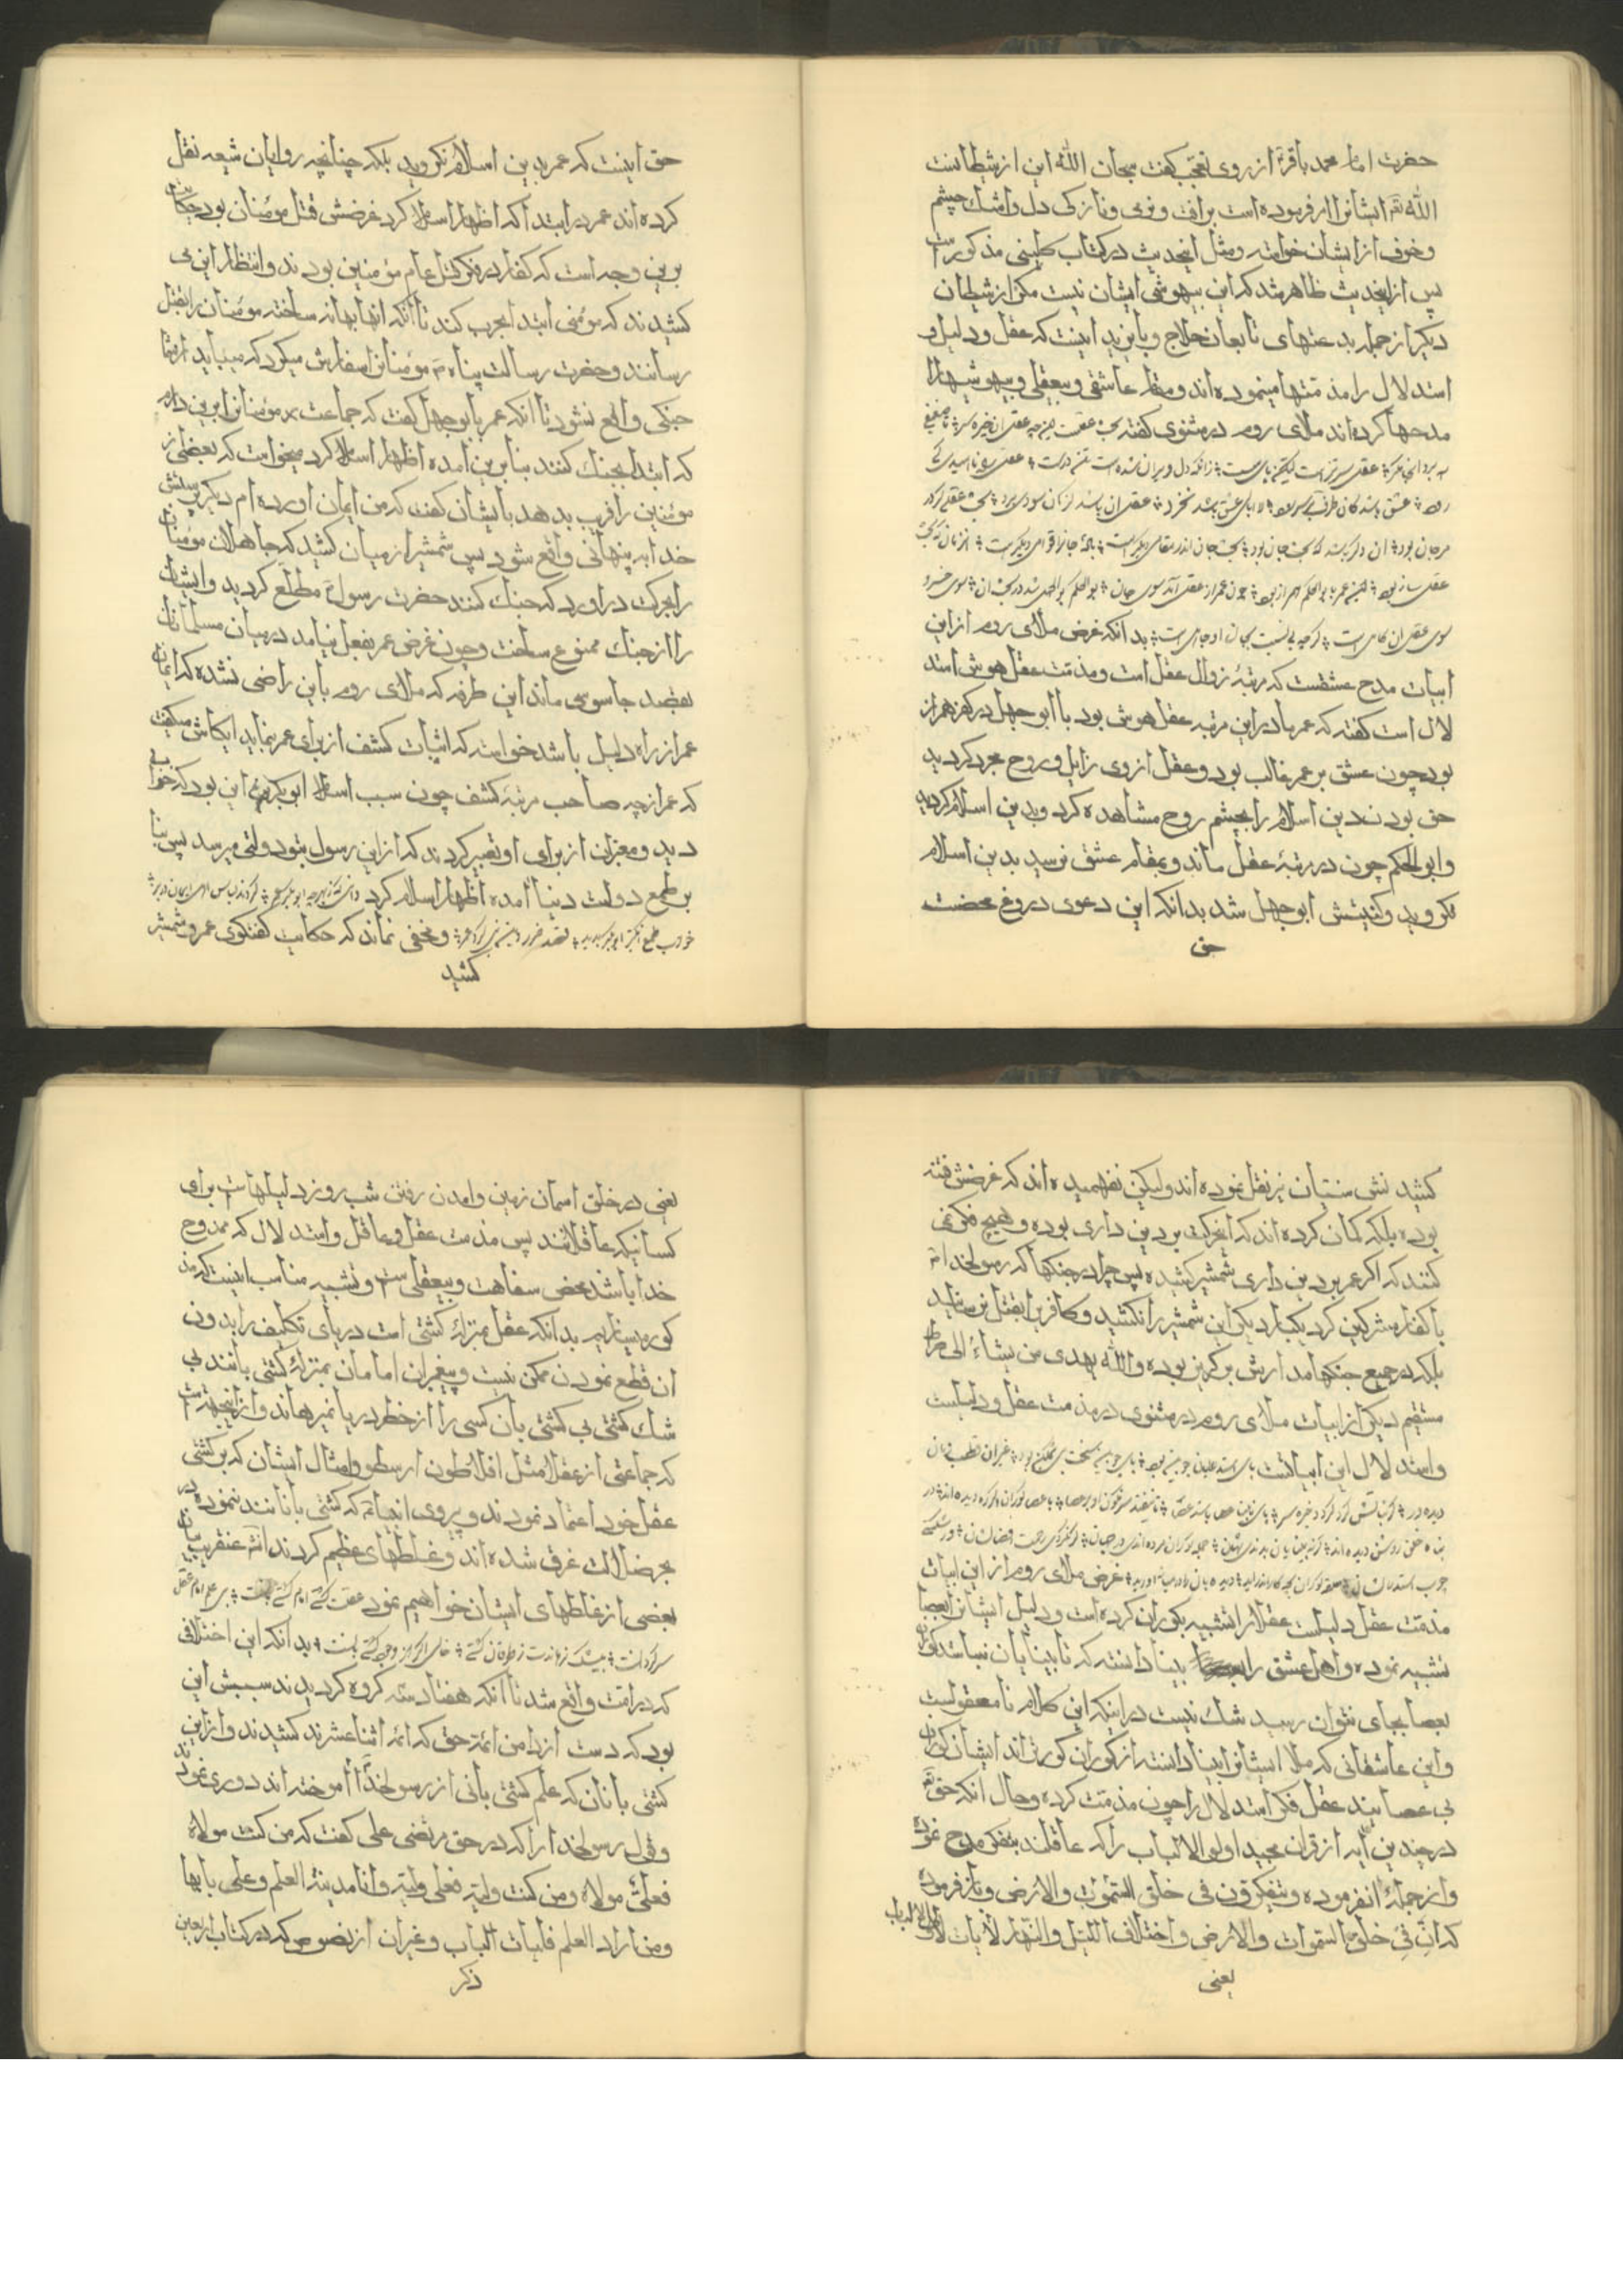 حضرت امام محمد باقر از روی تعجب گفت سبحان الله این از شیطانست
الله ایشانرا فرموده است برافت و نرمی و نازکی دل و اشک چشم
و خوف از ایشان خواسته و مثل اینحدیث در کتاب کلینی مذکور است
پس از اینحدیث ظاهر شد که این بیهوشی ایشان نیست مکر از شیطان
دیکر از جمله بدعتهای تابعان حلاج و بایزید اینست که عقل و دلیل و
استدلال را مذمتها مینموده اند و مقام عاشقی و بیعقلی و بیهوشیها را
مدحها کرده اند ملای روم در مثنوی کفته
عقل سر تیز است لیکن پای سست زانکه دل ویران شده است تن درست
عشق باشد کان طرف بر سر دود
مرجان بود آن دکر باشد که بحث جان بود بحث جان اندر مقامی دیکر است باده جانرا قوامی دیکر است آن زمان که بحث
عقلی ساز بود این عمر با بوالحکم همراز بود چون عمر از عقل آمد سوی جان بوالحکم بوجهل شد در بحث آن
بدانکه غرض ملای روم از این
ابیات مدح عشقست که مرتبهٔ زوال عقل است و مذمت عقل هوش استد
لال است کفته که عمر مادر این مرتبه عقل هوش بود با ابو جهل در کفر همراز
بود چون عشق بر عمر غالب بود و عقل از وی زایل و روح مجرد کردید
حق بودن دین اسلام را بچشم روح مشاهده کرد و بدین اسلام کردید
و ابو الحکم چون در مرتبهٔ عقل ماند و بمقام عشق نرسید بدین اسلام
نکروید و کنیتش ابو جهل شد بدانکه این دعوی دروغ محضست
حق
حق اینست که عمر بدین اسلام نکروید بلکه چنانچه راویان شیعه نقل
کرده اند عمر در ابتدا که اظهار اسلام کرد غرضش قتل مؤمنان بود حکایت
برین وجه است که کفار در فکر قتل عام مؤمنین بودند و انتظار این می
کشیدند که مؤمنی ابتدا بحرب کند تا آنکه انها بهانه ساخته مؤمنان را بقتل
رسانند و حضرت رسالت پناه مؤمنانرا سفارش میکرد که میباید از شما
جنکی واقع نشود تا آنکه عمر با بوجهل کفت که جماعت مؤمنانرا برین دارم
که ابتدا بجنک کنند بنابرین آمده اظهار اسلام کرد میخواست که بعضی از
مؤمنین را فریب بدهد بایشان کفت که من ایمان آورده ام دیکر پرستش
خدا به پنهانی واقع شود پس شمشیر از میان کشید که جاهلان مؤمنان
را بحرکت درآورد که جنک کنند حضرت رسول مطلع کردید و ایشان
را از جنک ممنوع ساخت و چون غرض عمر بفعل نیامد در میان مسلمانان
بقصد جاسوسی ماند این طرفه که ملای روم باین راضی نشده که ایمان
عمر از راه دلیل باشد خواسته که اثبات کشف از برای عمر نماید ایکاش میکفت
که عمر ازچه صاحب مرتبهٔ کشف چون سبب اسلام ابوبکر این بود که خوابی
دید و معبران از برای او تعبیر کردند که از این رسول بتو دولتی میرسد پس بنا
بر طمع دولت دنیا آمده اظهار اسلام کرد
و مخفی نماند که حکایت کفتکوی عمر و شمشیر
کشید
کشیدنش سنیان نیز نقل نموده اند ولیکن نفهمیده اند که غرضش فتنه
بوده بلکه کمان کرده اند که اینحرکت بر دین داری بوده و هیچ فکر نمی
کنند که اکر عمر بر دین داری شمشیر کشیده پس چرا در جنکها که رسولخدا
با کفار مشرکین کرد یکبار دیکر این شمشیر را نکشید و کافر را بقتل نرسانید
بلکه در جمیع جنکها مدارش بر کریز بوده و الله یهدی من یشاء الی صراط
مستقیم دیکر از ابیات ملای روم در مثنوی در مذمت عقل و دلیلست
و استدلال این ابیاتست پای استدلالیان چوبین بود پای چوبین سخت بی تمکین بود غیر آن قطب زمان
دیده ور کز ثباتش کوه کردد خیره سر پای نابینا عصا باشد عصا تا نیفتد سرنکون او بر حصا
غرض ملای روم از این ابیات
مذمت عقل دلیلست عقلا را تشبیه بکوران کرده است و دلیل ایشانرا بعصا
تشبیه نموده و اهل عشق را بینا دانسته که تا بینایان نباشد کوران
بعصا بجای نتوان رسید شک نیست در اینکه این کلام نا معقولیست
و این عاشقانی که ملا ایشانرا بینا دانسته از کوران کورتراند ایشان کوران
بی عصایند عقل فکر استدلال را چون مذمت کرده و حال آنکه حق
در چندین آیه از قران مجید اولو الالباب را که عاقلند بتفکر مدح نموده
و از جمله انفرموده و یتفکرون فی خلق السموات و الارض و باز فرموده
که ان فی خلق السموات و الارض و اختلاف اللیل و النهار لآیات لاولی الالباب
یعنی
یعنی در خلق اسمان زمین و امدن رفتن شب روز دلیلهاست برای
کسانیکه عاقلانند پس مذمت عقل و عاقل و استدلال که ممدوح
خدا باشد محض سفاهت و بیعقلی است و تشبیه مناسب اینست که مذ
کور میسازیم بدانکه عقل بمنزلهٔ کشتی است دریای تکلیف را بدون
ان قطع نمودن ممکن نیست و پیغمبران امامان بمنزلهٔ کشتی بانند بی
شک کشتی بی کشتی بان کسی را از خطر دریا نمیرهاند و از اینجهت است
که جماعتی از عقلا مثل افلاطون ارسطو و امثال ایشان که بر کشتی
عقل خود اعتماد نمودند و پیروی انبیا که کشتی بانانند ننمودند در
بحر ضلالت غرق شده اند و غلطهای عظیم کردند عنقریب بیان
بعضی از غلطهای ایشان خواهیم نمود
بدانکه این اختلافی
که در امت واقع شد تا آنکه هفتاد سه کروه کردیدند سببش این
بود که دست از دامن ائمهٔ حق که ائمه اثناعشرند کشیدند و از این
کشتی بانان که علم کشتی بانی از رسولخدا آموخته اند دوری نمودند
و قول رسولخدا را که در حق مرتضی علی کفت که من کنت مولاه
فعلی مولاه و من کنت ولیه فعلی ولیه و انا مدینة العلم و علی بابها
و من اراد العلم فلیات الباب و غیر ان از نصوص که در کتاب اربعین
ذکر